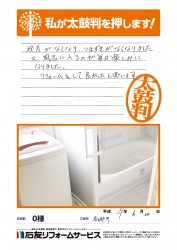 私が太鼓判を押します!
段差がなくなり、つまずきがなくなりました
又、お風呂に入るのが毎日楽しみに
なりました。
リフォームをして良かったと思います
太鼓判
平成 29年 6月
O様
石友リフォームサービス